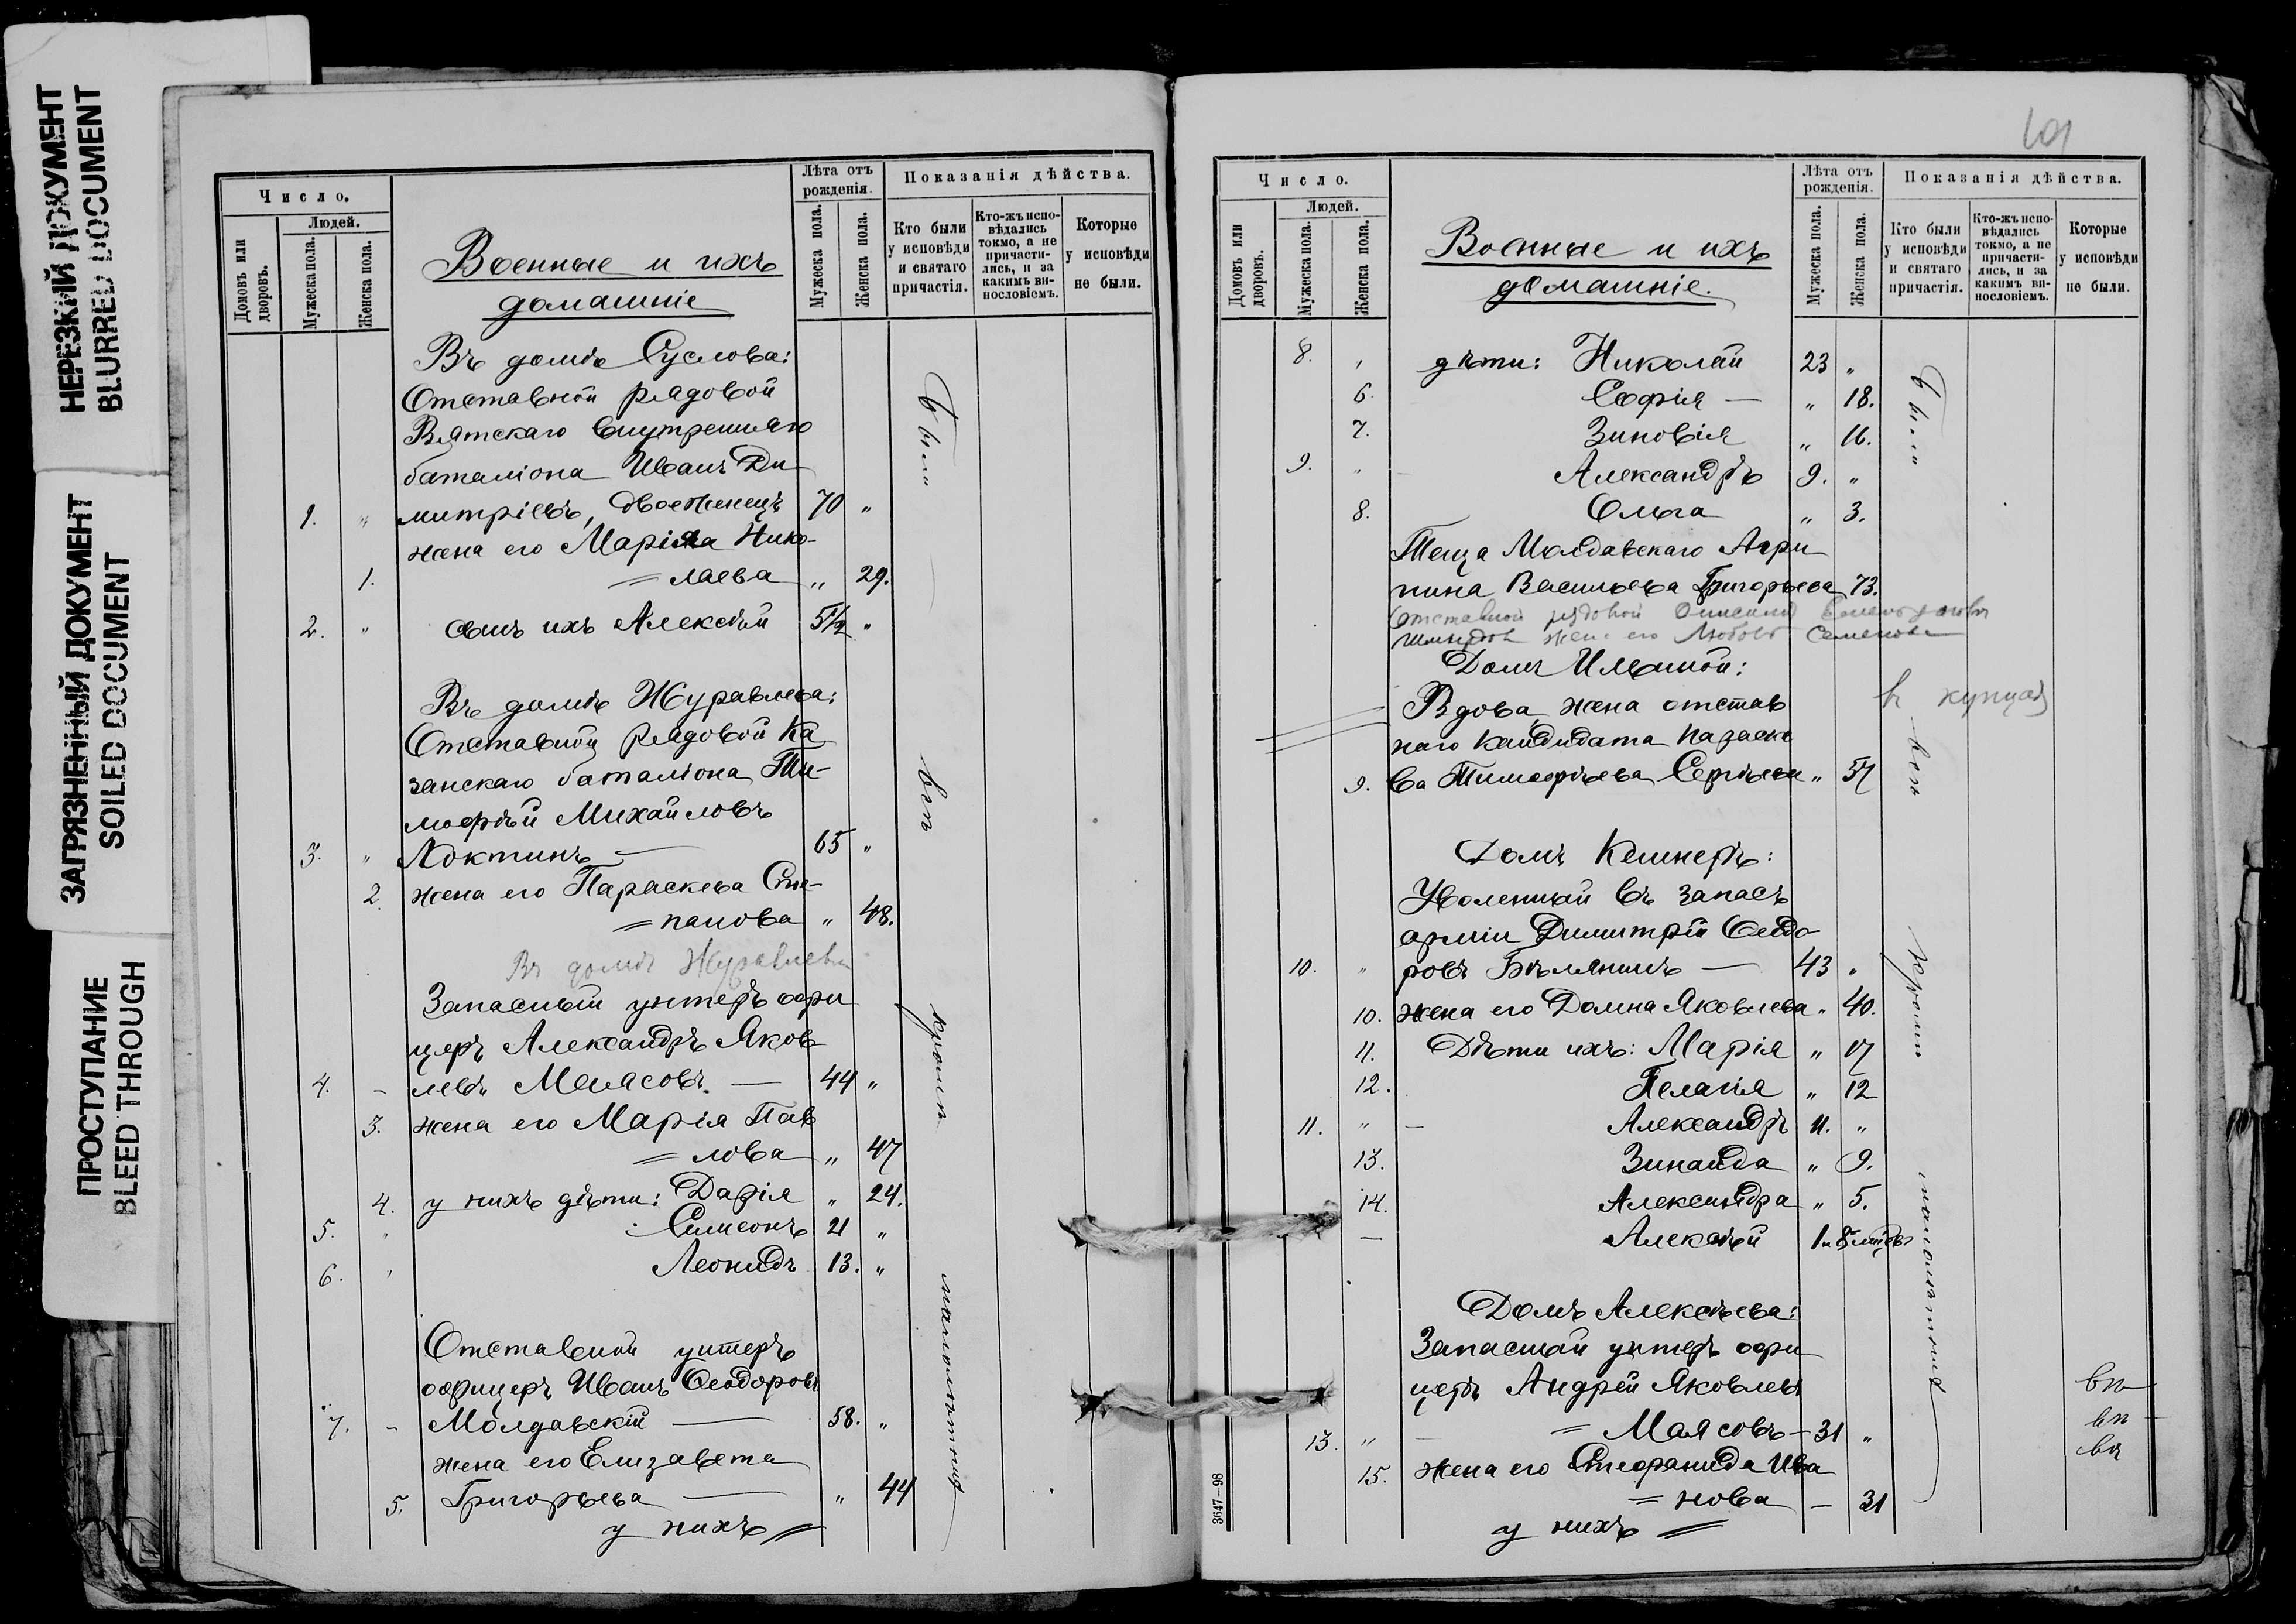 НЕРЕЗКИЙ ДОКУМЕНТ
BLURRED DOCUMENT
ЗАГРЯЗНЕННЫЙ ДОКУМЕНТ
SOILED DOCUMENT
ПРОСТУПАНИЕ
BLEED THROUGH
Число.
Людей.
Домовъ или дворовъ.
Мужеска пола.
Женска пола.
Военные и ихъ
домашніе
Лѣта отъ рожденія.
Мужеска пола.
Женска пола.
Показанія дѣйства.
Кто были у исповѣди и святаго причастія.
Кто-жъ исповѣдались токмо, а не причастились, и за какимъ винословіемъ.
Которые у исповѣди не были.
Въ домѣ Суслова:
Отставной рядовой
Вятскаго внутренняго
баталіона Иванъ Ди
1. " митріевъ, двоеженецъ 70 "
жена его Марія Нико-
1. = лаева " 29.
2. " сынъ ихъ Алексѣй 5½ "
Въ домѣ Журавлева:
Отставной рядовой Ка
занскаго баталіона Ти-
моѳей Михайловъ
3. " Локтинъ — 65 "
2. жена его Параскева Сте-
= панова " 48.
Въ домѣ Журавлева
Запасный унтеръ офи
церъ Александръ Яков
4. - левъ Маясовъ — 44 "
3. жена его Марія Пав
= лова " 47
4. у нихъ дѣти: Дарія " 24.
5. " Симеонъ 21 "
6. " Леонидъ 13. "
Отставной унтеръ
офицеръ Иванъ Ѳеодоровъ
7. - Молдавскій — 58. "
жена его Елизавета
5. Григорьева — " 44
у нихъ =
были
всѣ
кромѣ
малолѣтнихъ
101
Число.
Людей.
Домовъ или дворовъ.
Мужеска пола.
Женска пола.
Военные и ихъ
домашніе.
Лѣта отъ рожденія.
Мужеска пола.
Женска пола.
Показанія дѣйства.
Кто были у исповѣди и святаго причастія.
Кто-жъ исповѣдались токмо, а не причастились, и за какимъ винословіемъ.
Которые у исповѣди не были.
8. " дѣти: Николай 23 "
6. Софія — " 18.
7. Зиновія " 16.
9. " Александръ 9. "
8. Ольга " 3.
Теща Молдавскаго Агри
пина Васильева Григорьева 73.
Отставной рядовой
жена его Любовь Семенова
Домъ Ильиной:
Вдова, жена отстав
наго кандидата Параске
9. ва Тимофѣева Сергѣева " 57
в купцах
Домъ Келнеръ:
Уволенный въ запасъ
арміи Димитрій Ѳеодо
10. " ровъ Бѣлянинъ — 43 "
10. жена его Домна Яковлева " 40.
11. Дѣти ихъ: Марія " 17
12. Пелагія " 12
11. " Александръ 11. "
13. Зинаида " 9.
14. Александра " 5.
— Алексѣй 1 и 8 мѣсяц
Домъ Алексѣева:
Запасный унтеръ офи
церъ Андрей Яковлевъ
13. " = Маясовъ — 31 "
15. жена его Стефанида Ива
= нова — 31
у нихъ =
были
всѣ
кромѣ
малолѣтнихъ
3647—98